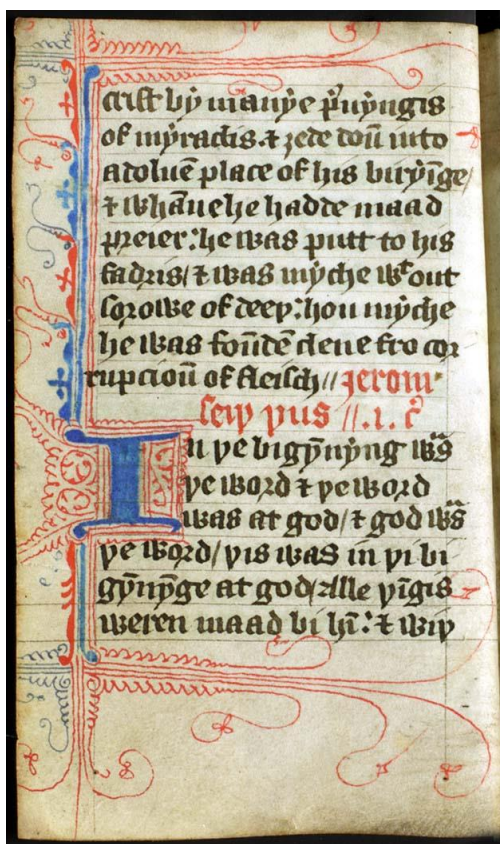 crist bi manye þ'nyngis
of myraclis ⁊ ȝede doū into
a doluē place of his biryīge/
⁊ whāne he hadde maad
preier: he was putt to his
fadris/ ⁊ was myche wt out
sorowe of deeþ: hou myche
he was foūdē clene fro cor
rupcioū of fleisch // Jerom
seiþ þus // .i. c̄
In þe bigȳnyng was
þe word ⁊ þe word
was at god/ ⁊ god was
þe word/ þis was in þi bi
gȳnȳge at god/ alle þīgis
weren maad bi hī: ⁊ wiþ